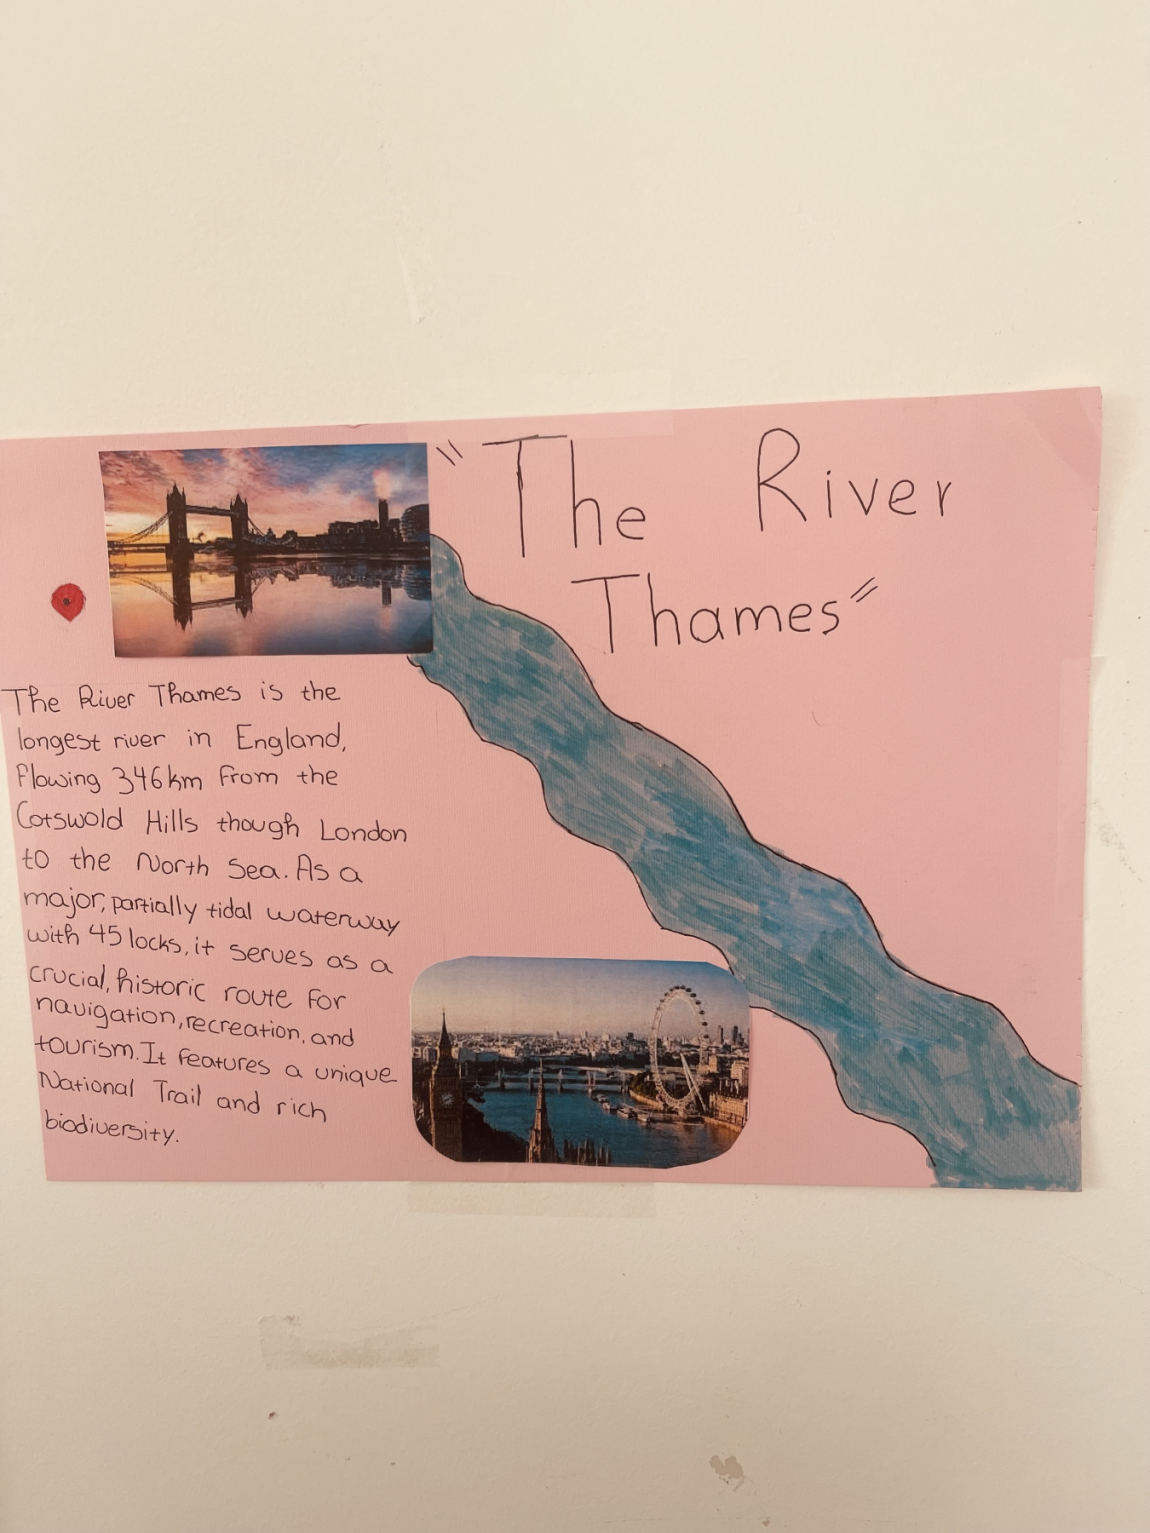 "The River
Thames"
The River Thames is the
longest river in England,
flowing 346km from the
Cotswold Hills though London
to the North Sea. As a
major, partially tidal waterway
with 45 locks, it serves as a
crucial, historic route for
navigation, recreation, and
tourism. It features a unique
National Trail and rich
biodiversity.